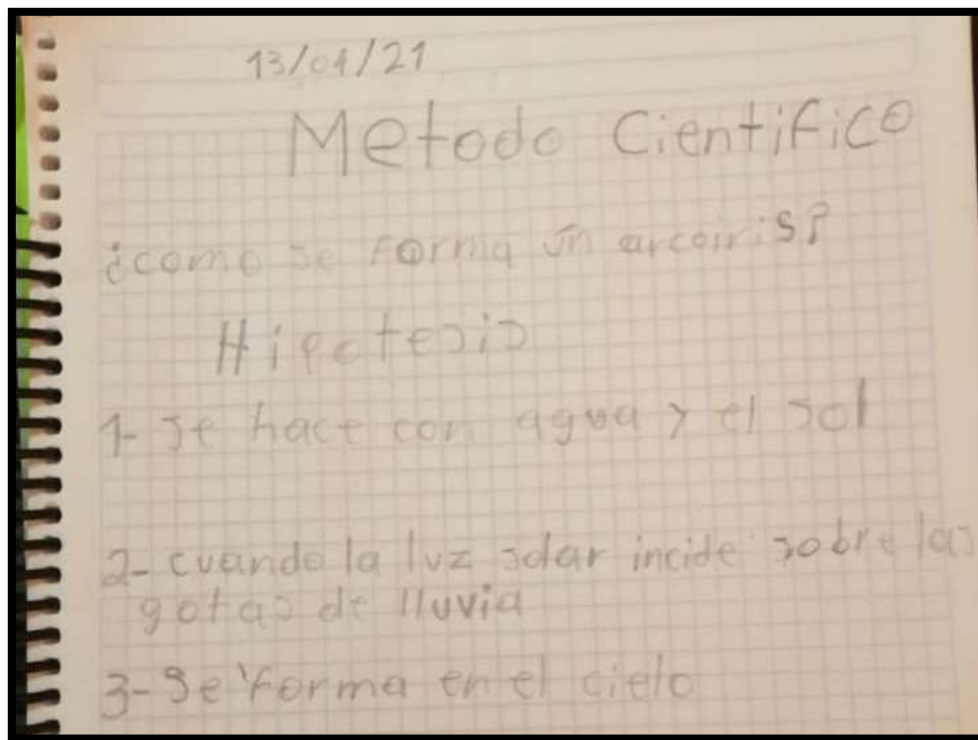 13/04/21
Metodo Cientifico
¿como se forma un arcoiris?
Hipotesis
1- se hace con agua y el sol
2- cuando la luz solar incide sobre las
gotas de lluvia
3- Se forma en el cielo